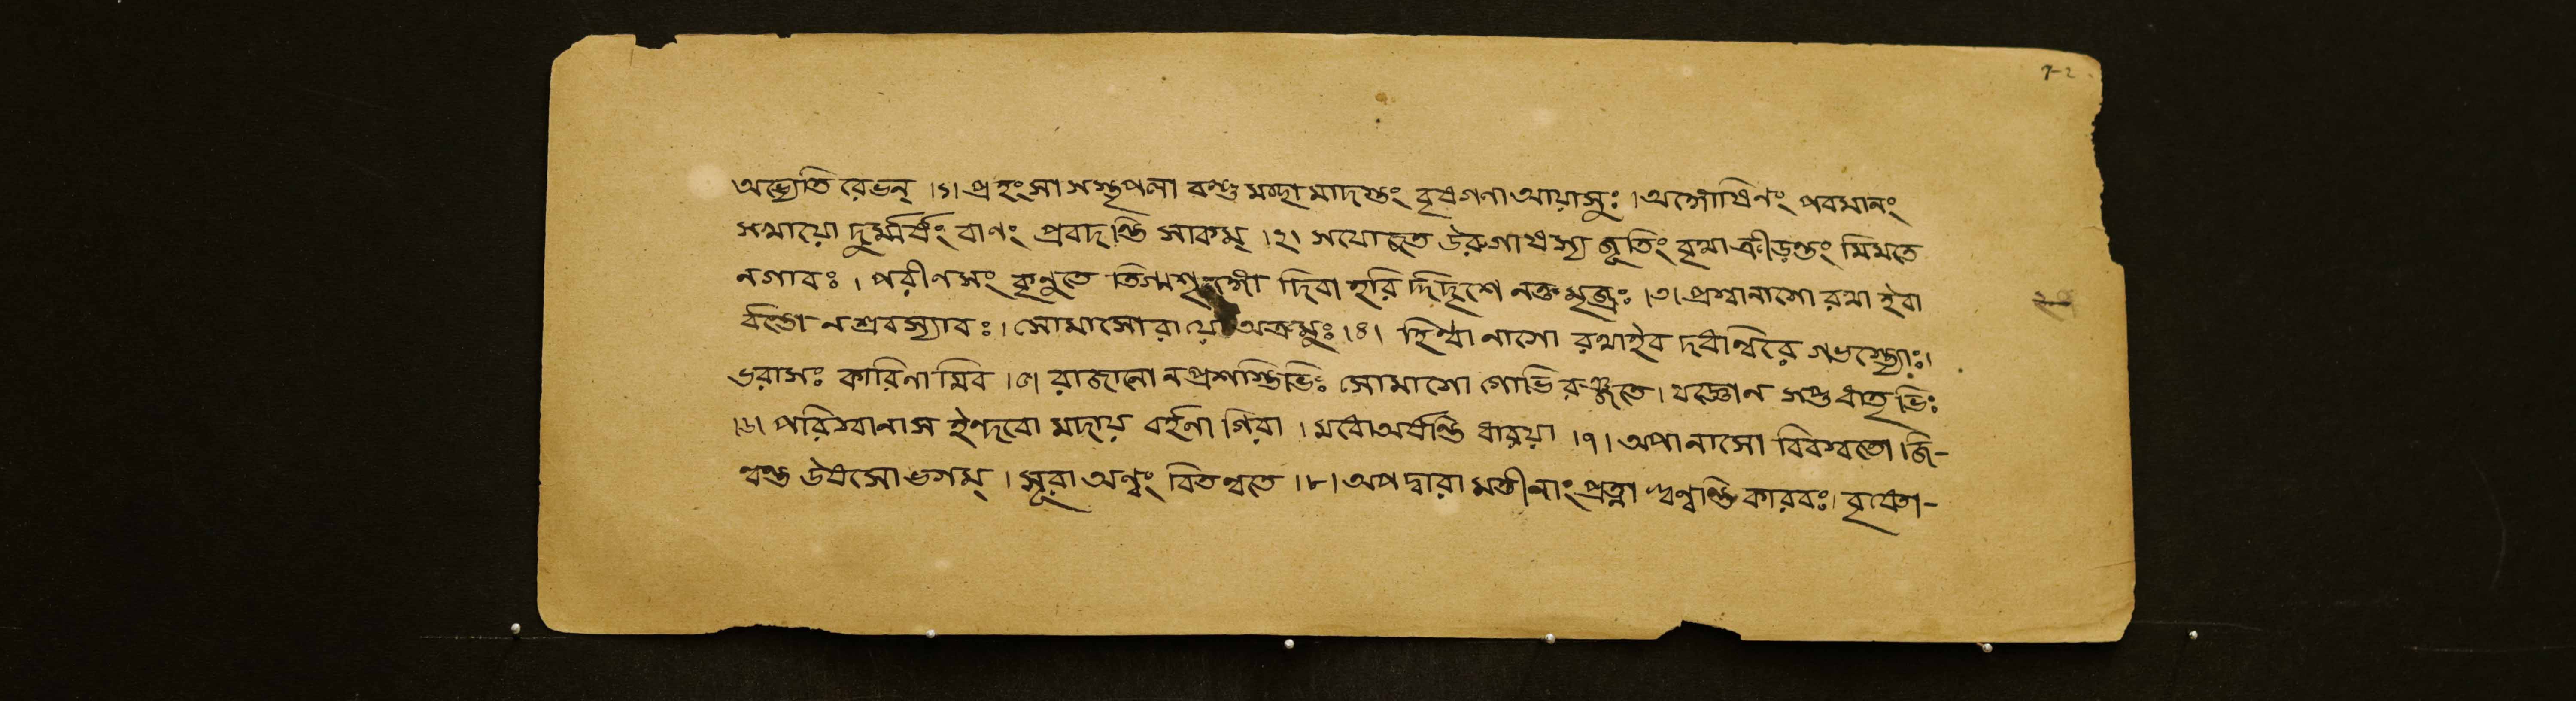 ৭-২
অভ্যেতি রেভন্ ।১। প্রহংসা সস্তৃপলা বগ্নু মচ্ছা মাদস্তং বৃষগণা আয়াসুঃ । অঙ্গোষিণং পবমানং
সখায়ো দুর্ম্মর্ষং বাণং প্রবদন্তি সাকম্ ।২। সযোজত উরুগায়স্য জূতিং বৃথা ক্রীড়ন্তং মিমতে
নগাবঃ । পরীণসং কৃনুতে তিগ্মশৃঙ্গো দিবা হরি র্দদৃশে নক্তমৃজ্রঃ ।৩। প্রস্বানাসো রথা ইবা
র্বন্তো ন শ্রবস্যাবঃ । সোমাসো রায়ে অক্রমুঃ ।৪। হিন্বানাসো রথাইব দধন্বিরে গভস্ত্যোঃ।
ভরাসঃ কারিণা মিব ।৫। রাজানো ন প্রশস্তিভিঃ সোমাসো গোভি রঞ্জতে । যজ্ঞোন সপ্ত ধাতৃভিঃ
।৬। পরিস্বানাস ইন্দবো মদায় বর্হণা গিরা । মধো অর্ষন্তি ধারয়া ।৭। অপানাসো বিবস্বতো জি-
ন্বন্ত উষসো ভগম্ । সূরা অণ্বং বিতন্বতে ।৮। অপ দ্বারা মতীনাং প্রত্না ঋণ্বন্তি কারবঃ। বৃষ্ণো-